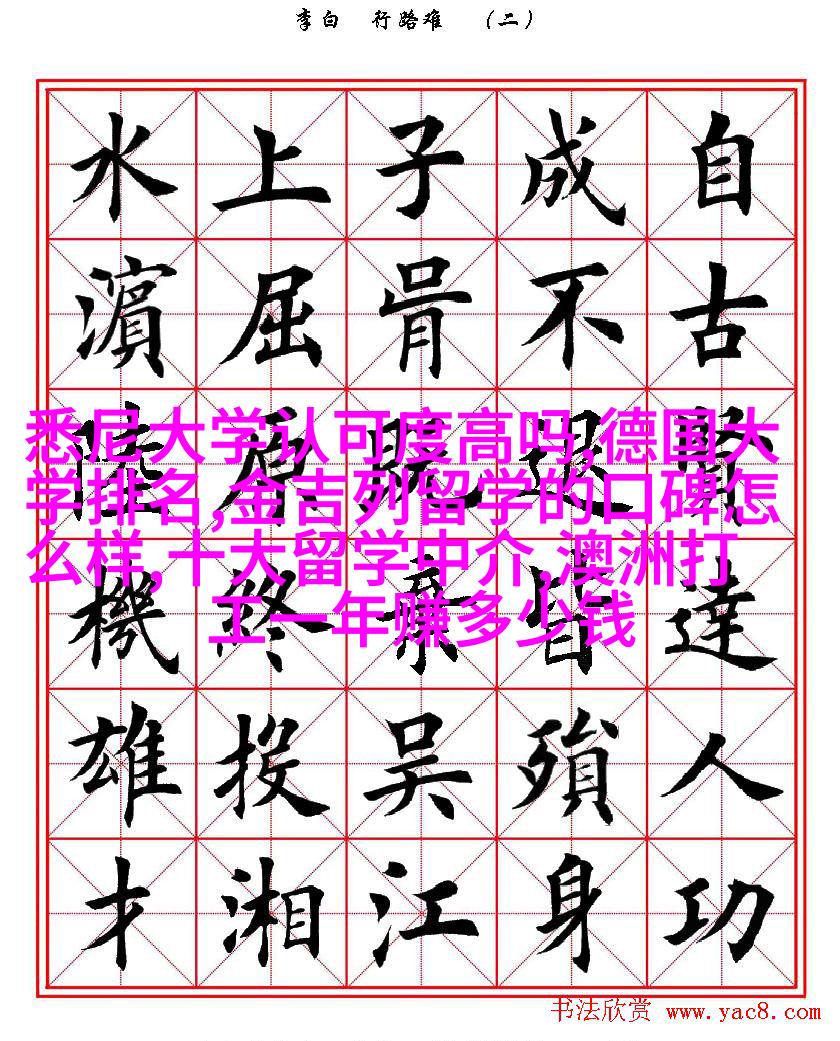 李白 行路难 （二）
自古賢達人功
成不退皆殞身
子胥既棄吳江
上屈原終投湘
水濱陸機雄才
悉尼大学认可度高吗,德国大
学排名,金吉列留学的口碑怎
么样,十大留学中介,澳洲打
工一年赚多少钱
书法欣赏 www.yac8.com